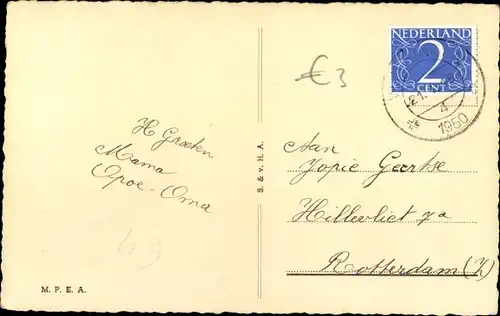 NEDERLAND
2
CENT
1950
4
€3
H Groeten
Mama
Opoe - Oma
Aan
Jopie Geertse
Hillevliet 7a
Rotterdam (Z)
S. & v. H. A.
M. P. E. A.